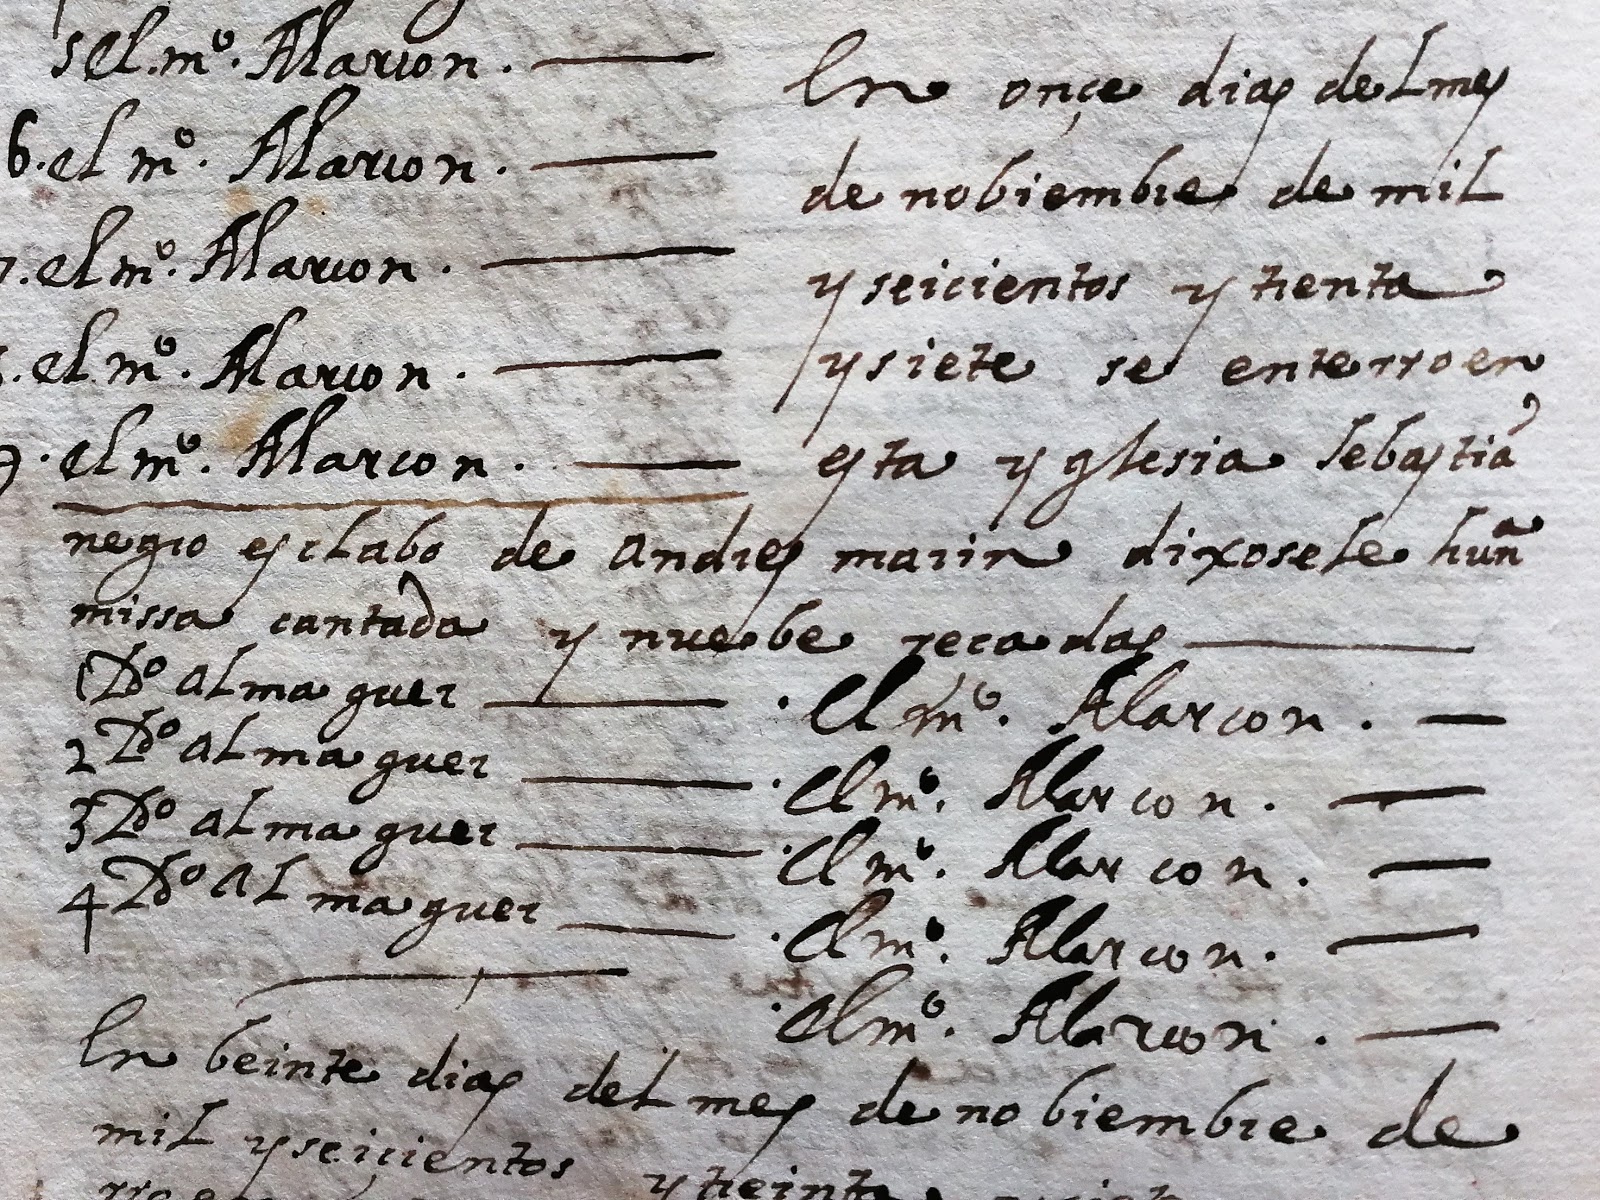 5 el m.º Alarcon.
6. el m.º Alarcon.
7. el m.º Alarcon.
el m.º Alarcon.
9. el m.º Alarcon.
En onçe dias del mes
de nobiembre de mil
y seicientos y trenta
y siete se enterro en
esta yglesia sebastiã
negro esclabo de andres marin dixosele hunª
missa cantada y nuebe reçadas
1 Dº almaguer
2 Dº almaguer
3 Dº almaguer
4 Dº almaguer
El m.º Alarcon.
El m.º Alarcon.
El m.º Alarcon.
El m.º Alarcon.
El m.º Alarcon.
En beinte dias del mes de nobiembre de
mil y seiçientos y treinta